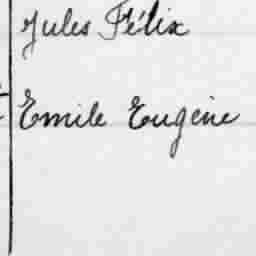 Jules Félix
Emile Eugène